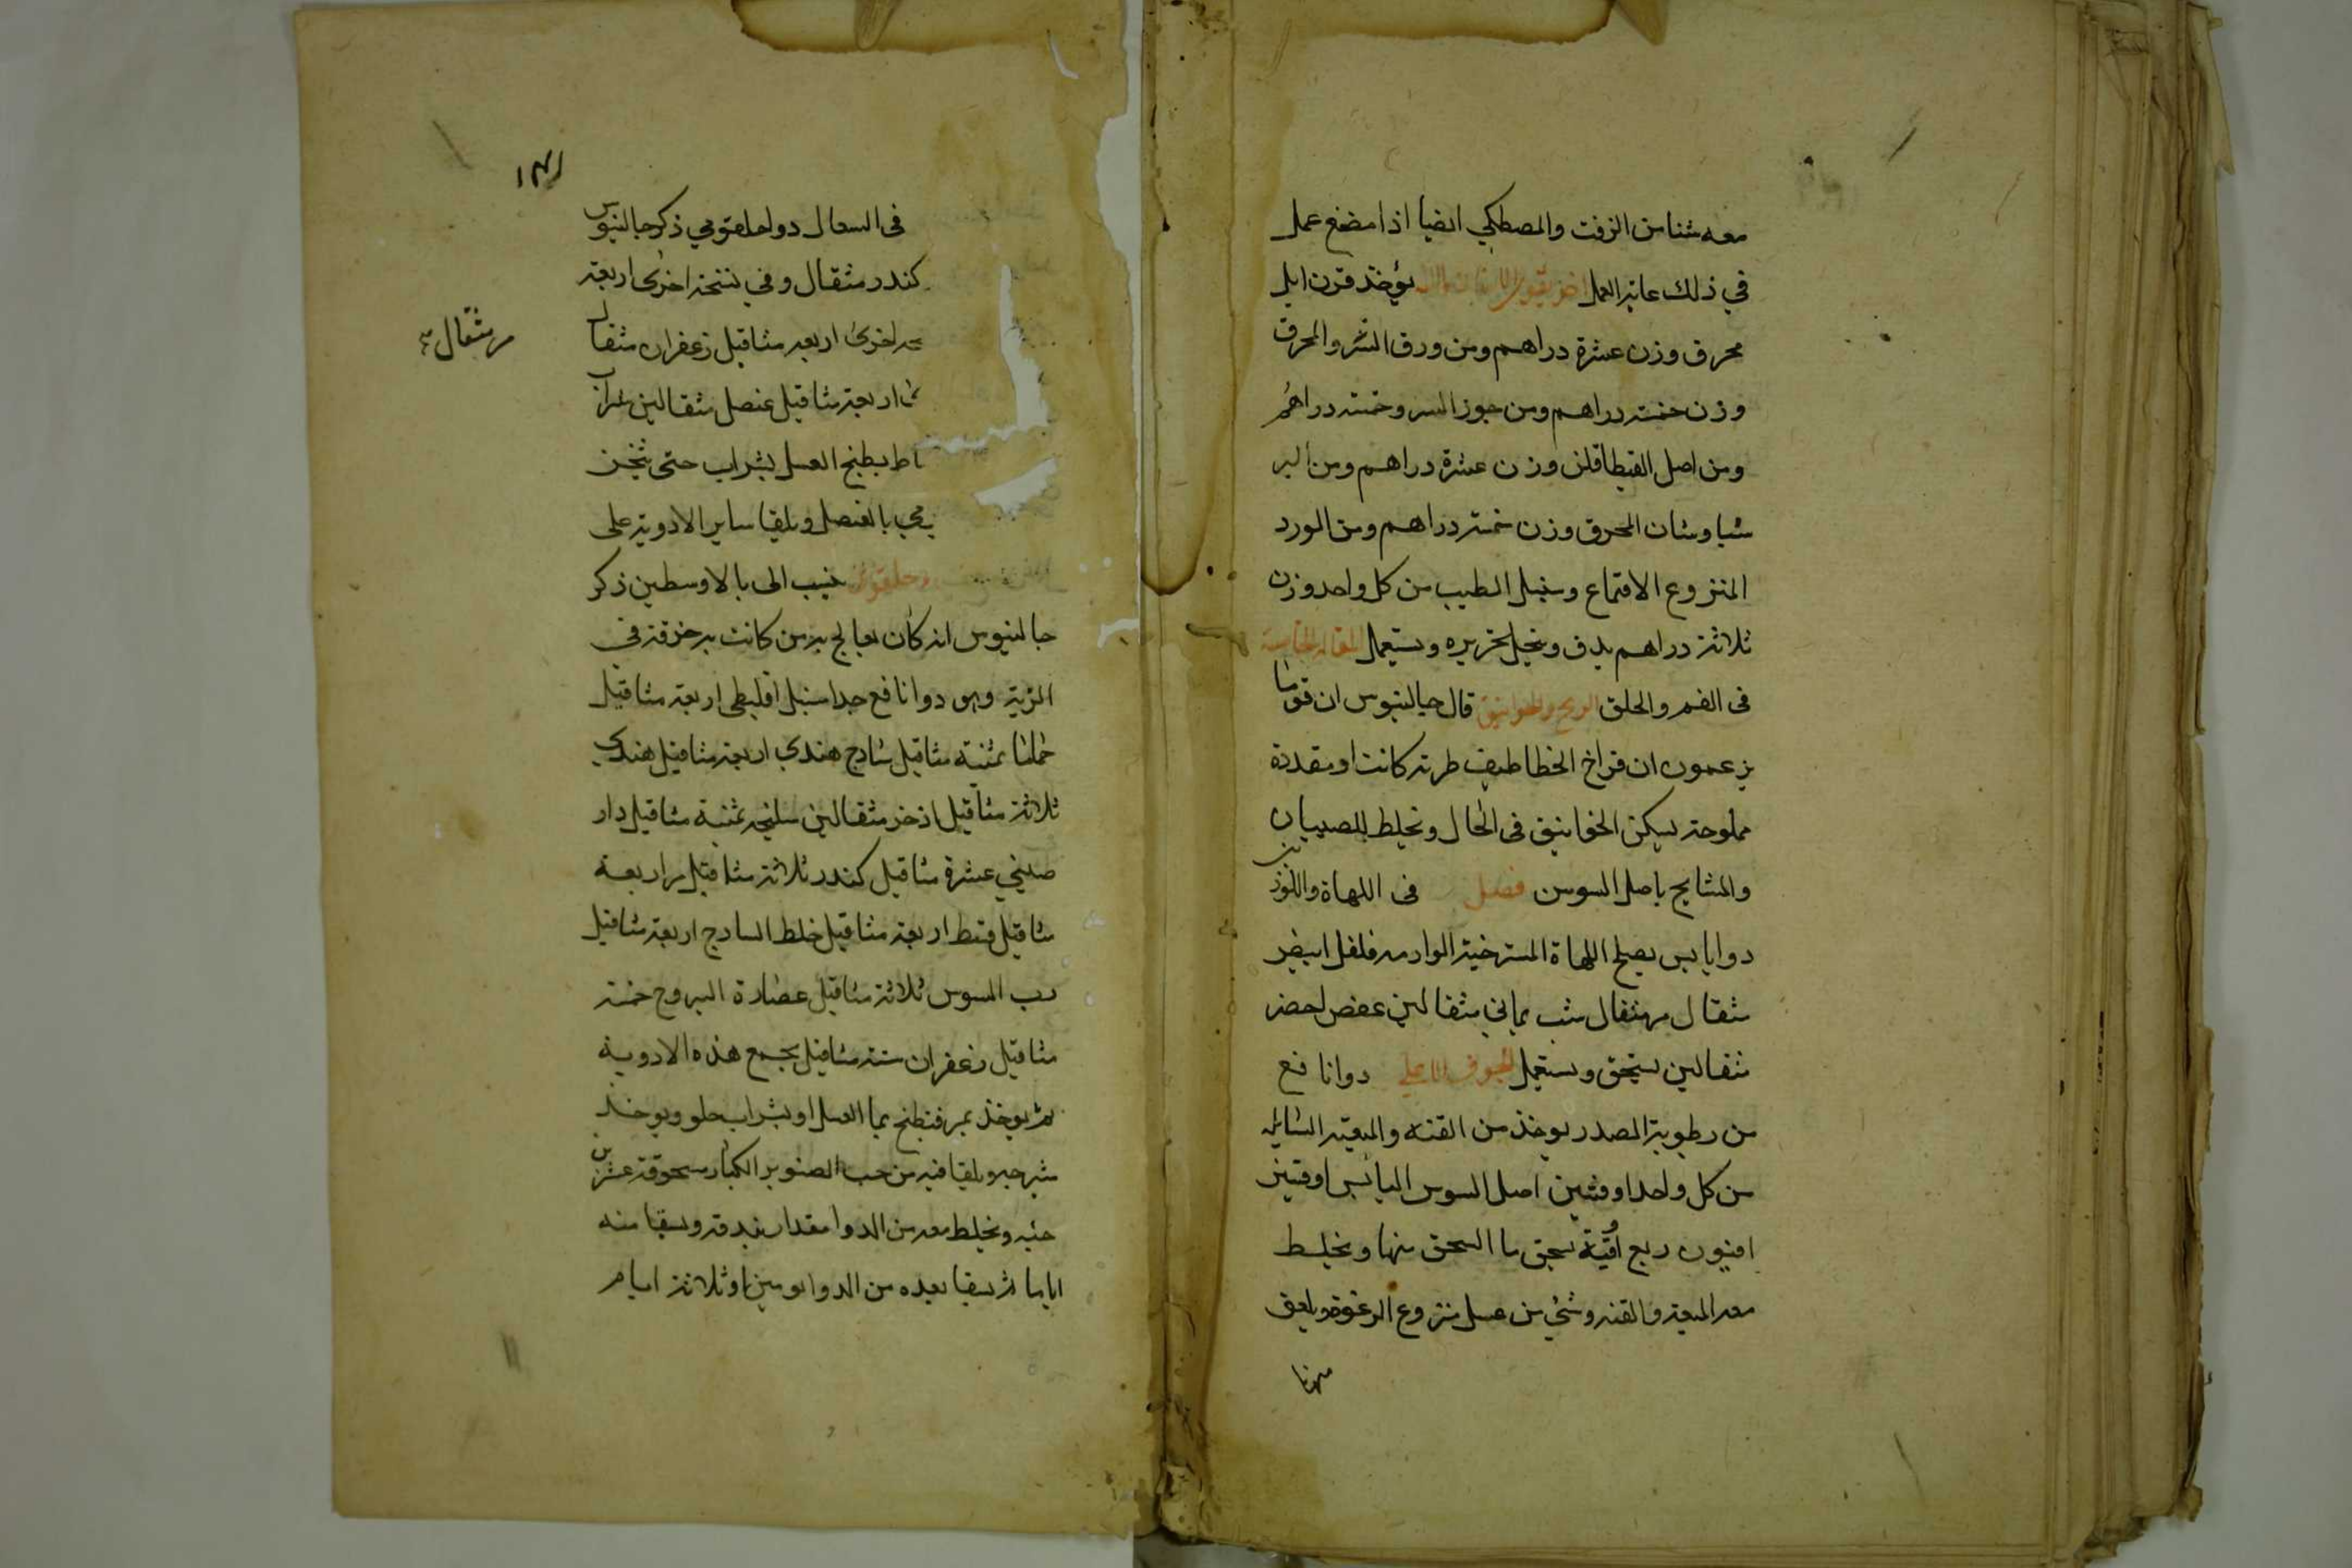 معه شئا من الزفت والمصطكي ايضا اذا مضغ عمل
في ذلك غاية العمل اخر يقوي الاسنان يؤخذ قرن ايل
محرق وزن عشرة دراهم ومن ورق السرو المحرق
وزن خمسة دراهم ومن جوز السرو خمسة دراهم
ومن اصل القنطافلن وزن عشرة دراهم ومن البر
شياوشان المحرق وزن خمسة دراهم ومن الورد
المنزوع الاقماع وسنبل الطيب من كل واحد وزن
ثلاثة دراهم يدق وينخل بحريره ويستعمل المقاله الخامسة
فى الفم والحلق الريح والخوانيق قال جالينوس ان قوما
يزعمون ان فراخ الخطاطيف طرية كانت او مقددة
مملوحة يسكن الخوانيق فى الحال ويخلط للصبيان
والمشايخ باصل السوس فصل فى اللهاة واللوزتين
دوا يابس يصلح اللهاة المسترخية الوارمه فلفل ابيض
مثقال مر مثقال شب يماني مثقالين عفص اخضر
مثقالين يسحق ويستعمل الجوف الاعلى دوا نافع
من رطوبة الصدر يوخذ من القنه والميعه السايله
من كل واحد اوقيتين اصل السوس اليابس اوقيتين
افيون ربع اُقيّة يسحق ما انسحق منها ويخلط
معه الميعه والقنه وشئ من عسل منزوع الرغوة ويلعق
منها
١٣١
فى السعال دوا حلقومي ذكر جالينوس
كندر مثقال وفي نسخة اخرى اربعة
اخرى اربعه مثاقيل زعفران مثقال
مر مثقال
اربعة مثاقيل عنصل مثقالين شراب
يطبخ العسل بشراب حتى يثخن
بالعنصل ويلقيا ساير الادوية على
ينسب الى بالاوسطين ذكر
جالينوس انه كان يعالج به من كانت به حرقة في
الرية وهو دوا نافع جدا سنبل اقليطى اربعة مثاقيل
حماما ثمنية مثاقيل سادج هندي اربعة مثاقيل هندي
ثلاثة مثاقيل اذخر مثقالين سليخه ثمنية مثاقيل دار
صيني عشرة مثاقيل كندر ثلاثة مثاقيل مر اربعة
مثاقيل قسط اربعة مثاقيل خلط السادج اربعة مثاقيل
رب السوس ثلاثة مثاقيل عصارة اليبروح خمسة
مثاقيل زعفران ستة مثاقيل يجمع هذه الادوية
ثم يوخذ تمر فيطبخ بما العسل او بشراب حلو ويوخذ
ويلقيا فيه من حب الصنوبر الكبار مسحوقة عشرين
حبه ويخلط معه من الدوا مقدار بندقه ويسقيا منه
اياما ثم يسقيا بعده من الدوا يومين او ثلاثة ايام